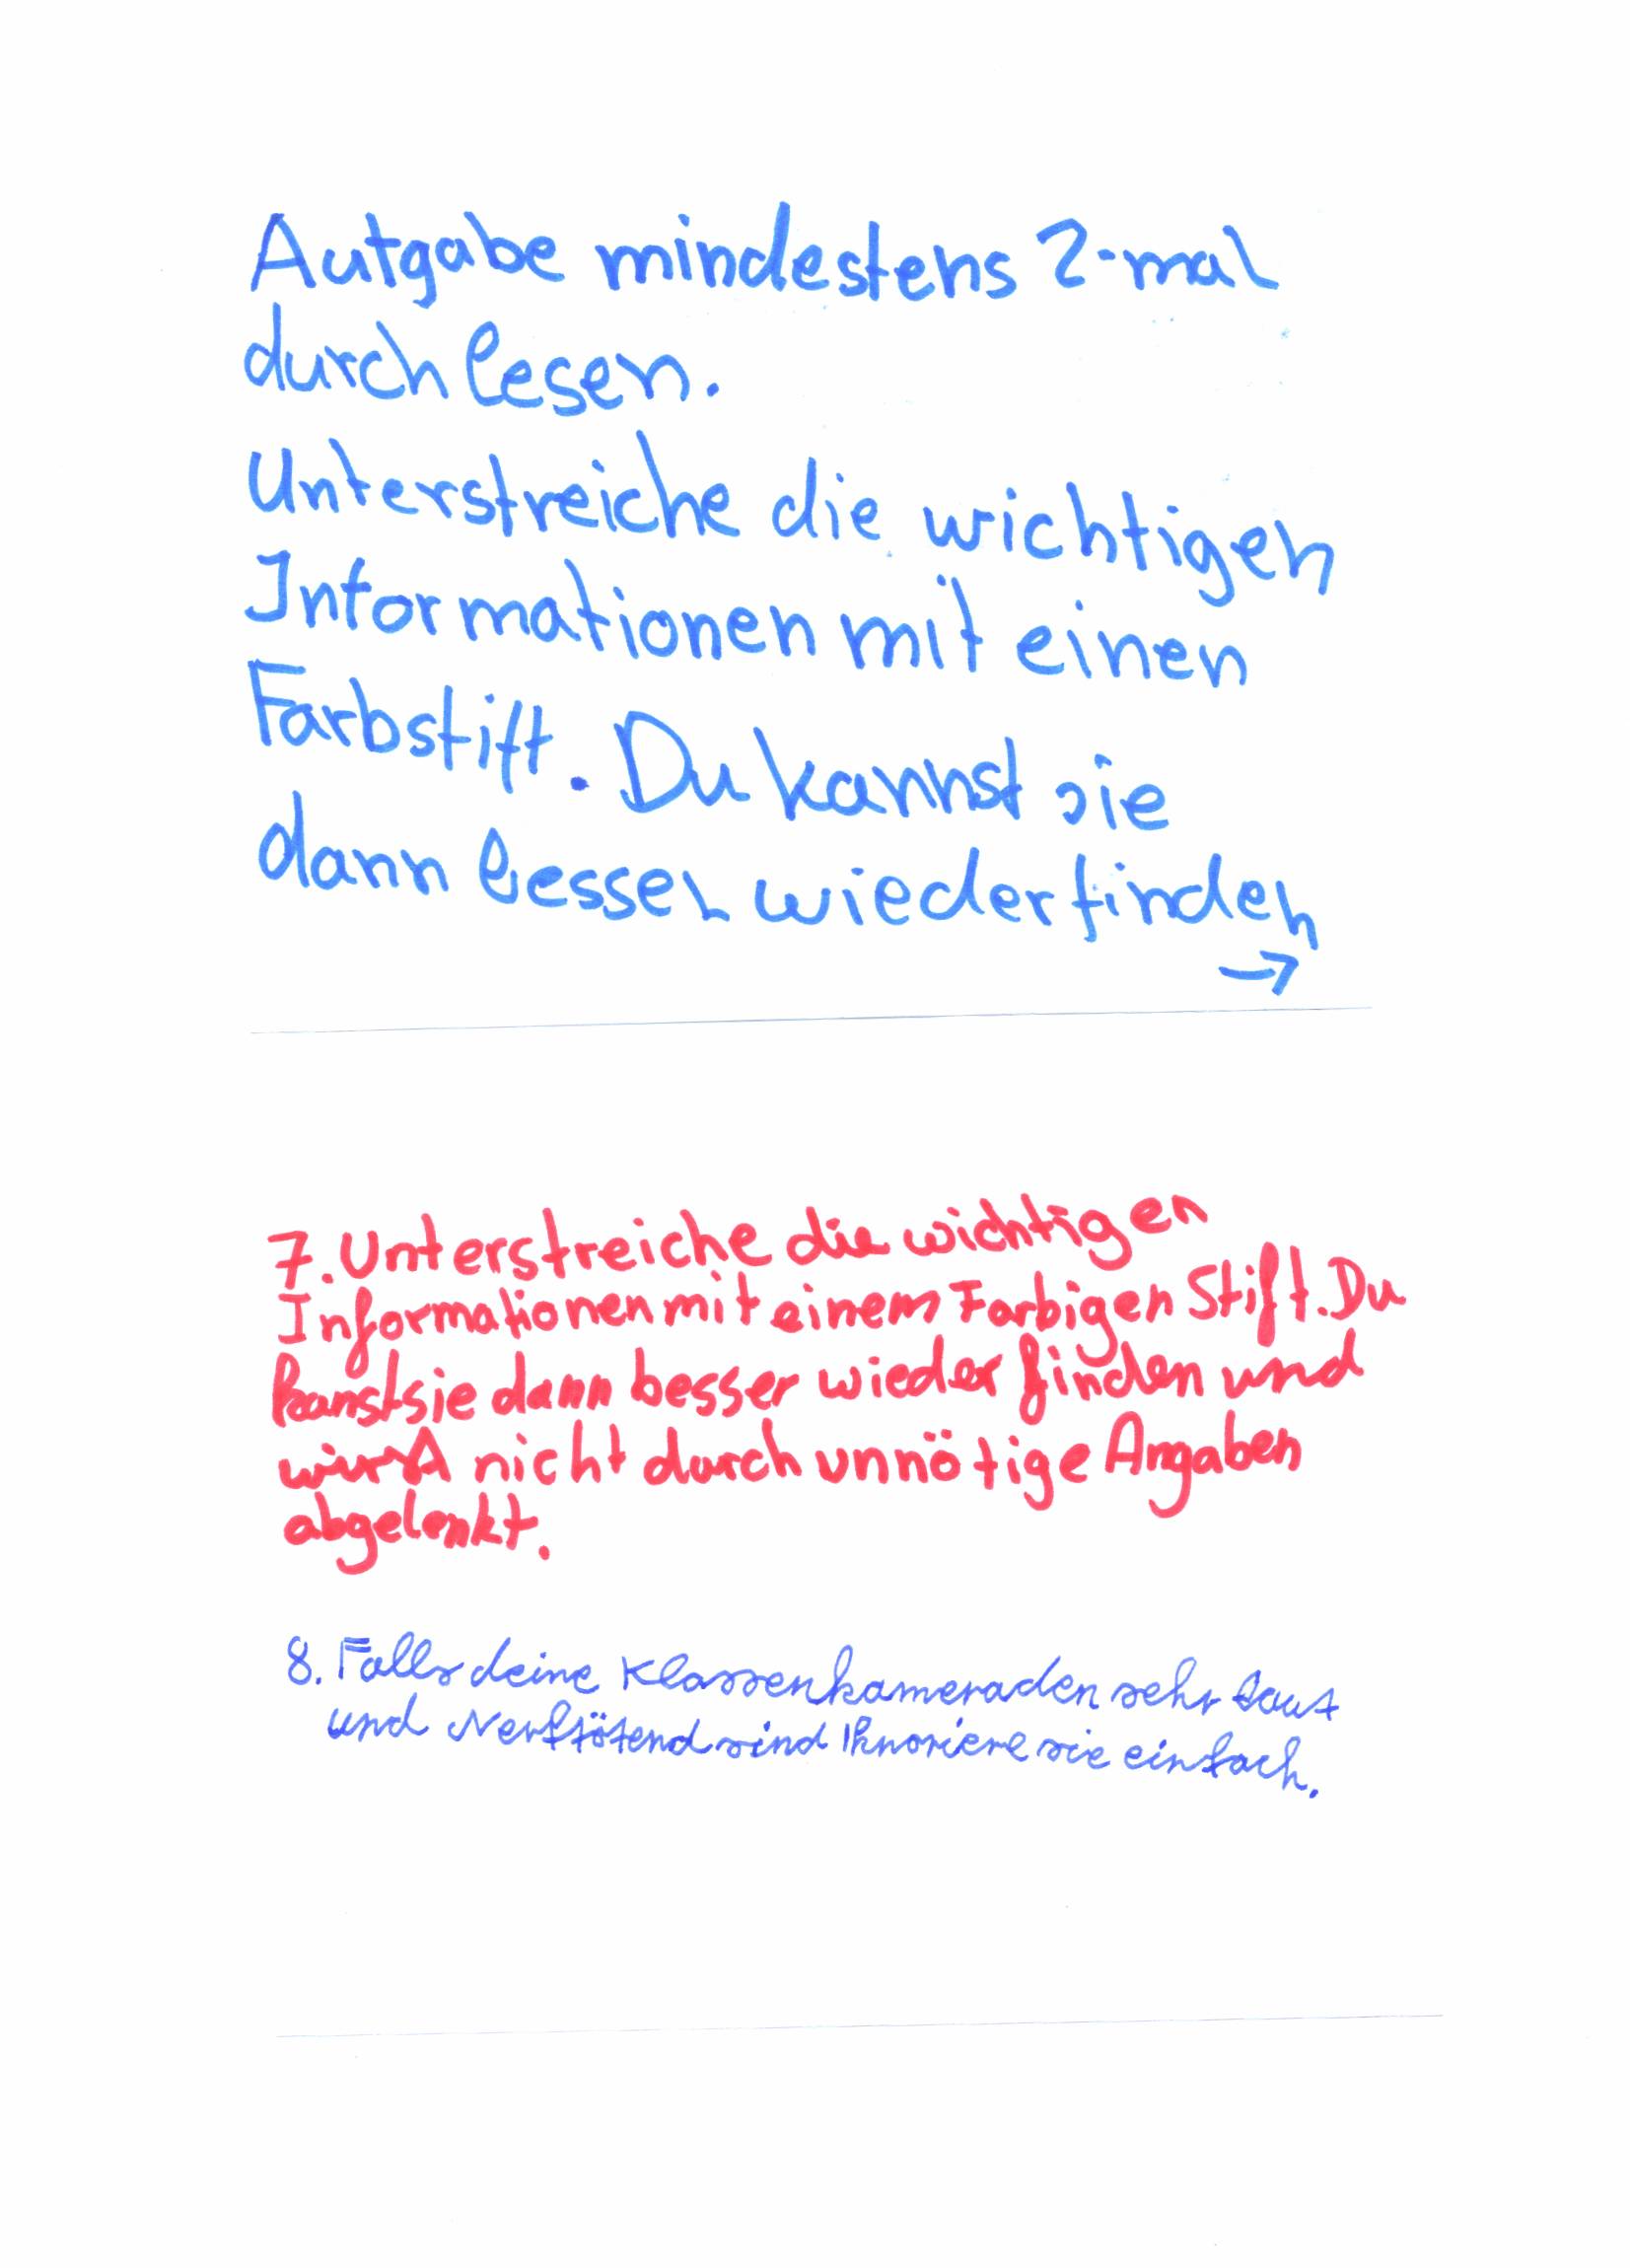 Aufgabe mindestens 2-mal
durchlesen.
Unterstreiche die wichtigen
Informationen mit einen
Farbstift. Du kannst sie
dann besser wiederfinden
→
7. Unterstreiche die wichtigen
Informationen mit einem Farbigen Stift. Du
kanst sie dann besser wieder finden und
wirst nicht durch unnötige Angaben
abgelenkt.
8. Falls deine Klassenkameraden sehr laut
und Nerftötend sind Iknoriere sie einfach.